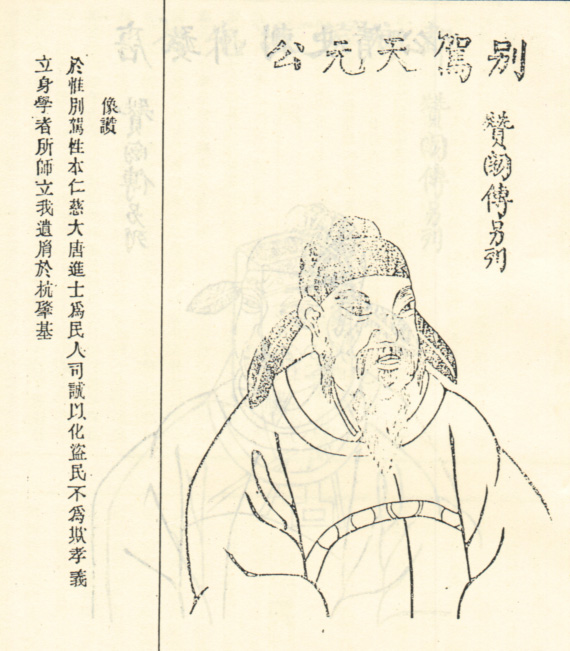 別駕天元公
贊闕傳另列
像讚
於惟別駕性本仁慈大唐進士爲民人司誠以化盜民不爲欺孝義
立身學者所師立我遺胤於杭肇基